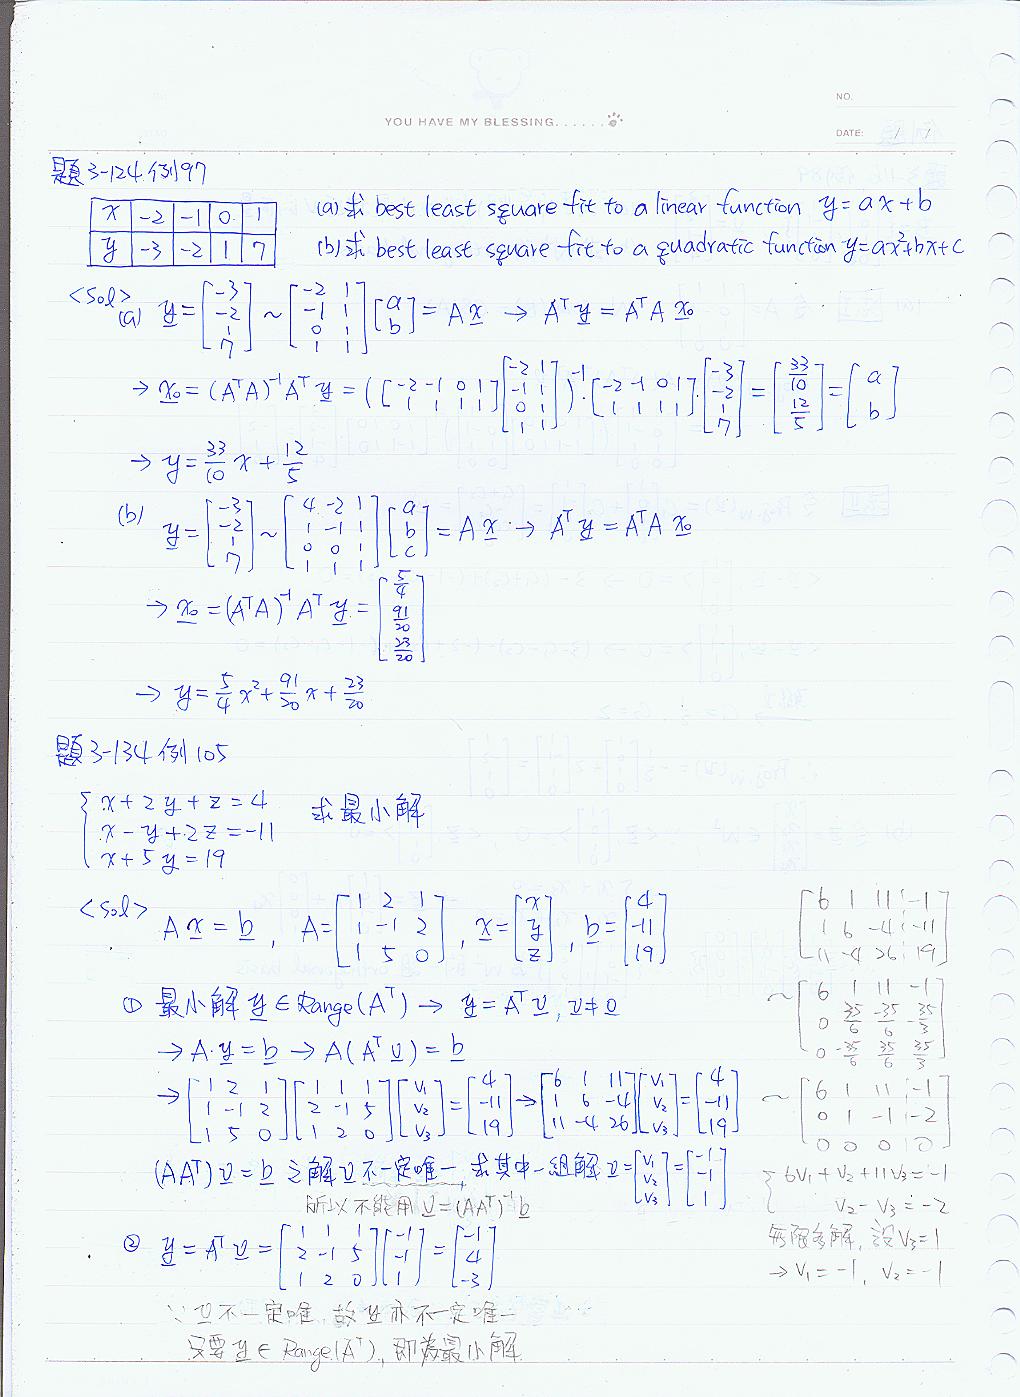 NO.
YOU HAVE MY BLESSING. . . . . .
DATE: / /
題3-124.例97
x -2 -1 0 1
y -3 -2 1 7
(a)求 best least square fit to a linear function y=ax+b
(b)求 best least square fit to a quadratic function y=ax²+bx+c
<sol>
(a) y=[-3; -2; 1; 7] ~ [-2 1; -1 1; 0 1; 1 1][a; b] = A x → Aᵀy = AᵀA x₀
→ x₀ = (AᵀA)⁻¹Aᵀ y = ([-2 -1 0 1; 1 1 1 1][-2 1; -1 1; 0 1; 1 1])⁻¹·[-2 -1 0 1; 1 1 1 1]·[-3; -2; 1; 7] = [33/10; 12/5] = [a; b]
→ y = 33/10 x + 12/5
(b) y=[-3; -2; 1; 7] ~ [4 -2 1; 1 -1 1; 0 0 1; 1 1 1][a; b; c] = A x → Aᵀy = AᵀA x₀
→ x₀ = (AᵀA)⁻¹Aᵀ y = [5/4; 91/20; 23/20]
→ y = 5/4 x² + 91/20 x + 23/20
題3-134 例105
x+2y+z=4 求最小解
x-y+2z=-11
x+5y=19
<sol> A x = b, A=[1 2 1; 1 -1 2; 1 5 0], x=[x; y; z], b=[4; -11; 19]
① 最小解 y∈Range(Aᵀ) → y=Aᵀv, v≠0
→ A·y=b → A(Aᵀv)=b
→ [1 2 1; 1 -1 2; 1 5 0][1 1 1; 2 -1 5; 1 2 0][v₁; v₂; v₃]=[4; -11; 19] → [6 1 11; 1 6 -4; 11 -4 26][v₁; v₂; v₃]=[4; -11; 19]
(AAᵀ)v=b 之解v不一定唯一, 求其中一組解 v=[v₁; v₂; v₃]=[-1; -1; 1]
所以不能用 v=(AAᵀ)⁻¹b
② y=Aᵀv=[1 1 1; 2 -1 5; 1 2 0][-1; -1; 1]=[-1; 4; -3]
∵ v不一定唯一, 故y亦不一定唯一
只要y∈Range(Aᵀ), 即為最小解
[6 1 11 -1; 1 6 -4 -11; 11 -4 26 19]
~[6 1 11 -1; 0 35/6 -35/6 -35/3; 0 -35/6 35/6 35/3]
~[6 1 11 -1; 0 1 -1 -2; 0 0 0 0]
6v₁+v₂+11v₃=-1
v₂-v₃=-2
無限多解, 設v₃=1
→v₁=-1, v₂=-1